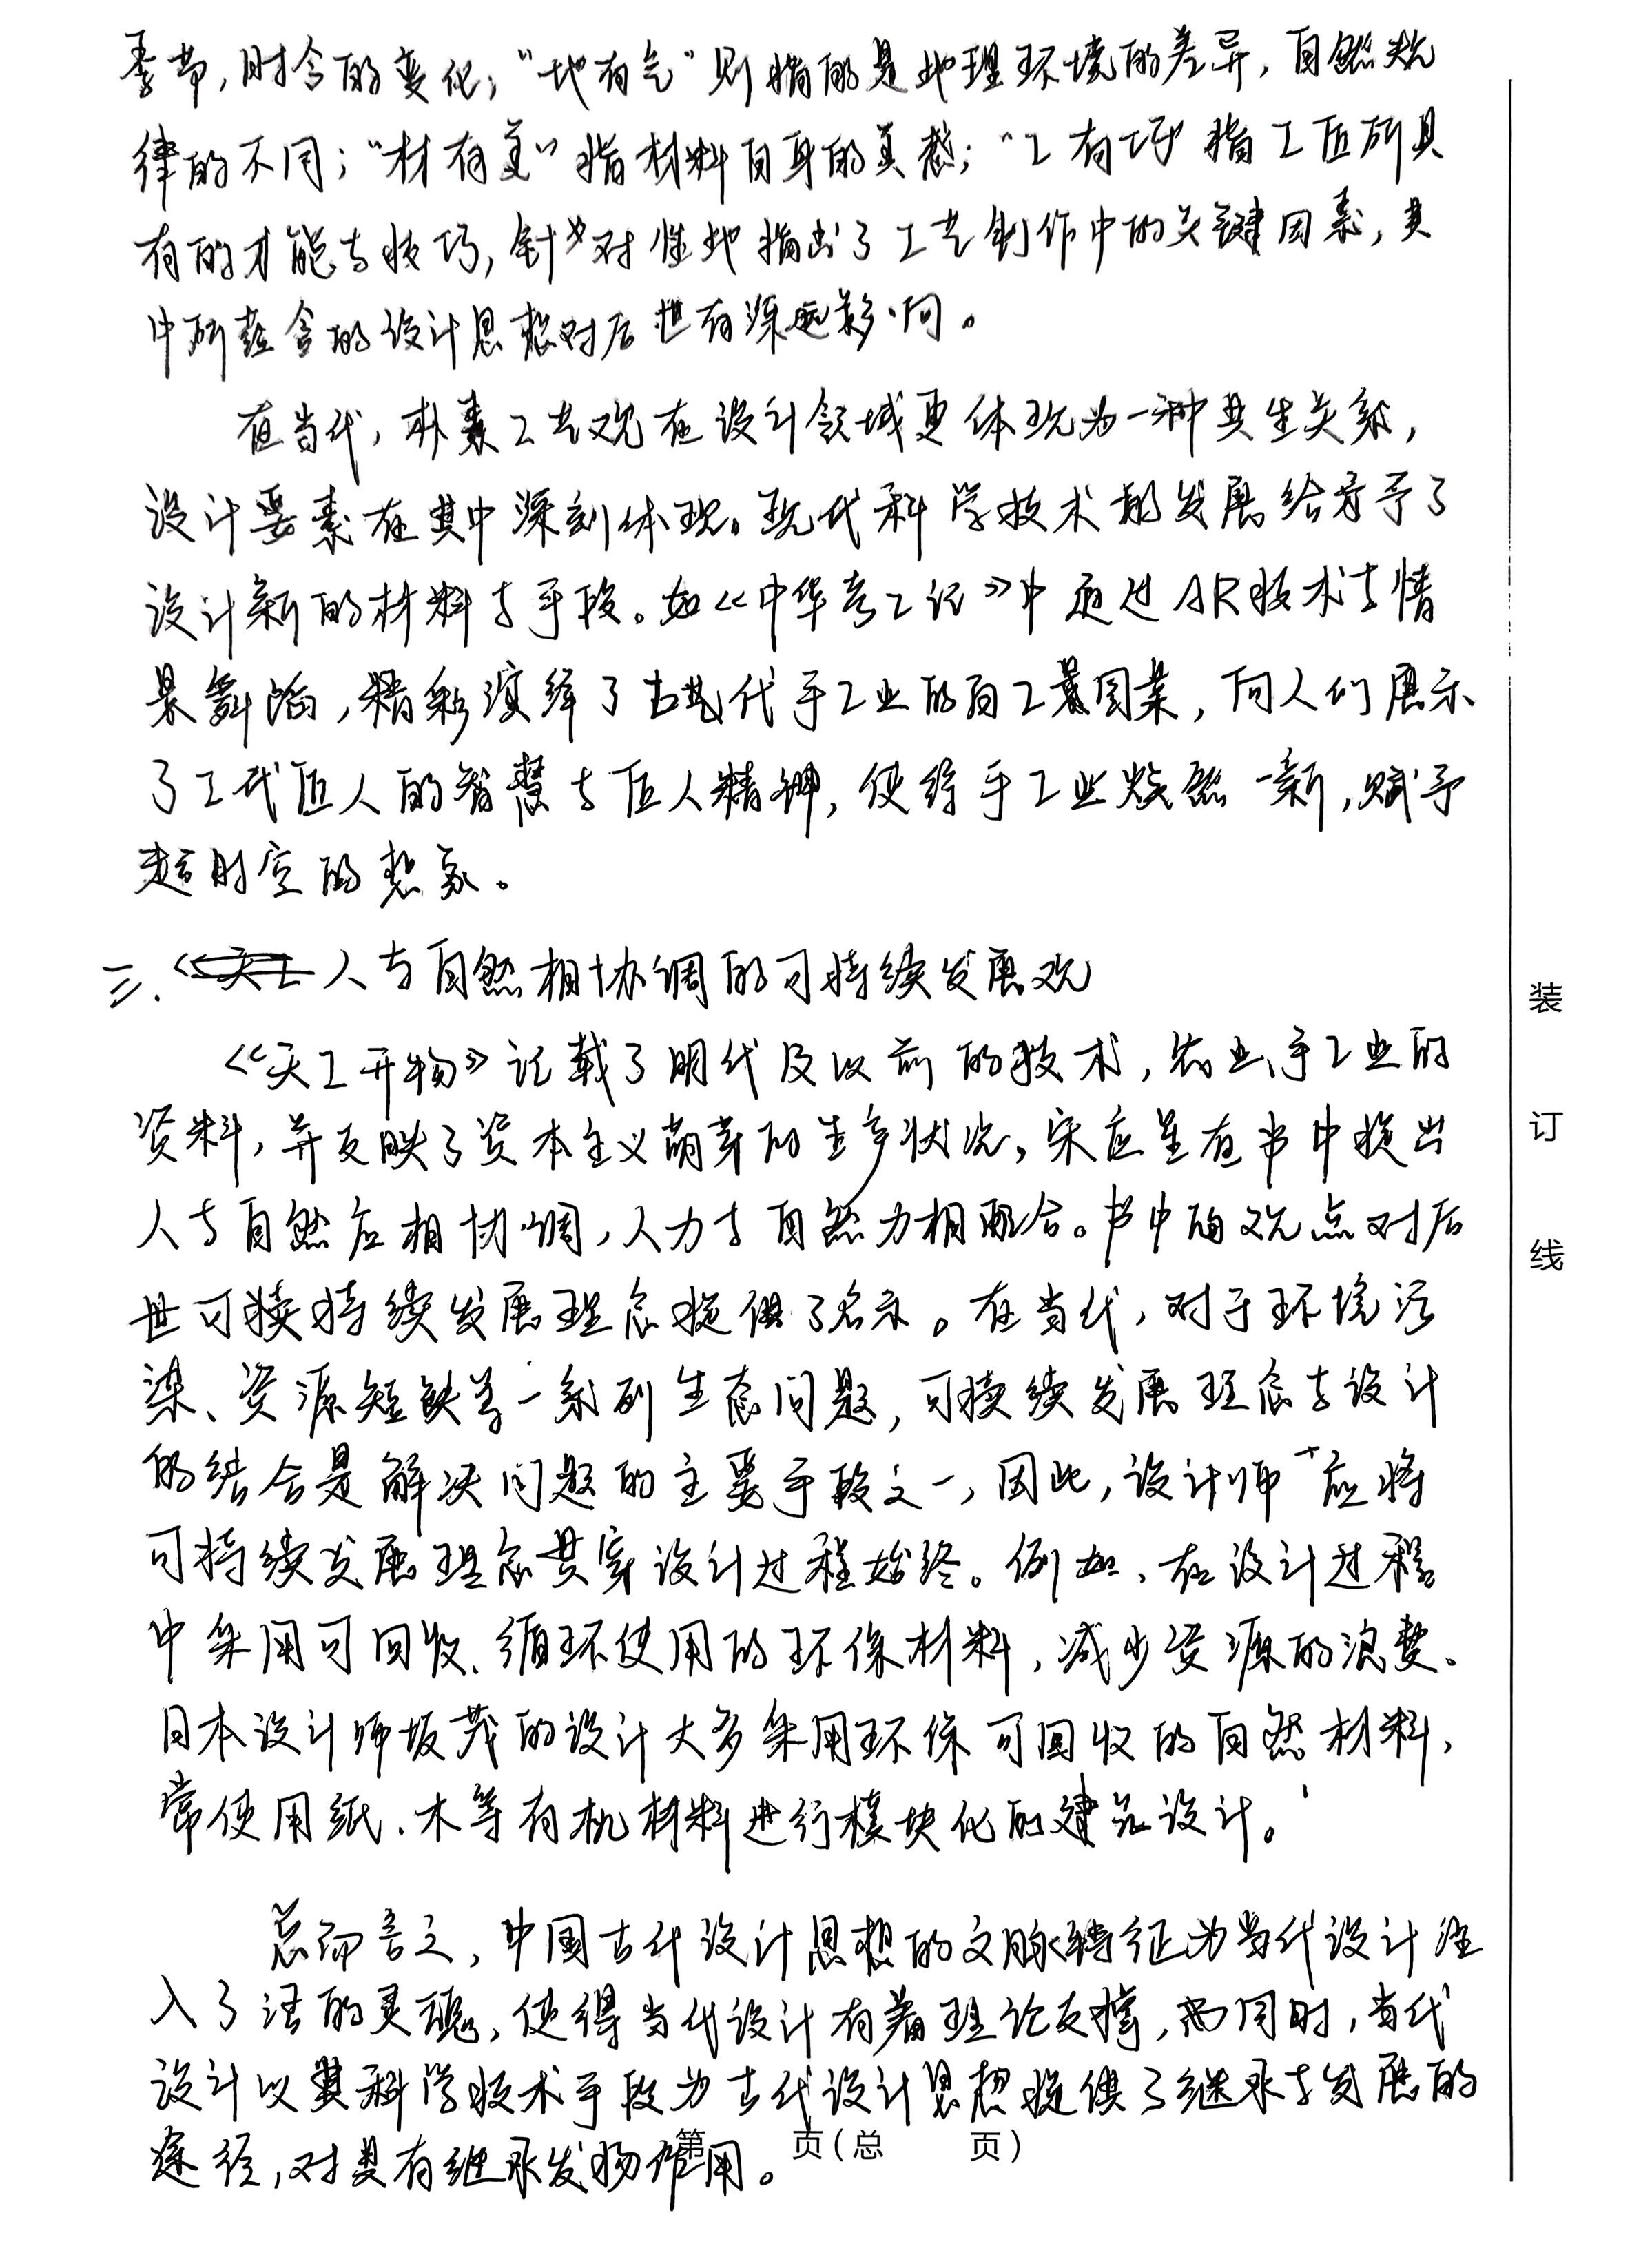 季节,时令的变化;“地有气”则指的是地理环境的差异,自然规
律的不同;“材有美”指材料自身的美感;“工有巧”指工匠所具
有的才能与技巧,针对性地指出了工艺制作中的关键因素,其
中所蕴含的设计思想对后世有深远影响。
在当代,朴素工艺观在设计领域更体现为一种共生关系,
设计要素在其中深刻体现。现代科学技术的发展给予了
设计新的材料与手段。如《中华考工记》中通过AR技术与情
景舞蹈,精彩演绎了古代手工业的百工图景,向人们展示
了工匠人的智慧与匠人精神,使得手工业焕然一新,赋予
超时空的想象。
三.人与自然相协调的可持续发展观
《天工开物》记载了明代及以前的技术,农业手工业的
资料,并反映了资本主义萌芽的生产状况。宋应星在书中提出
人与自然应相协调,人力与自然力相配合。书中的观点对后
世可持续发展理念提供了启示。在当代,对于环境污
染、资源短缺等一系列生态问题,可持续发展理念与设计
的结合是解决问题的主要手段之一,因此,设计师应将
可持续发展理念贯穿设计过程始终。例如、在设计过程
中采用可回收、循环使用的环保材料,减少资源的浪费。
日本设计师坂茂的设计大多采用环保可回收的自然材料,
常使用纸、木等有机材料进行模块化的建筑设计。
总而言之,中国古代设计思想的文脉特征为当代设计注
入了活的灵魂,使得当代设计有着理论支撑,而同时,当代
设计以其科学技术手段为古代设计思想提供了继承与发展的
途径,对其有继承发扬作用。
第 页(总 页)
装
订
线